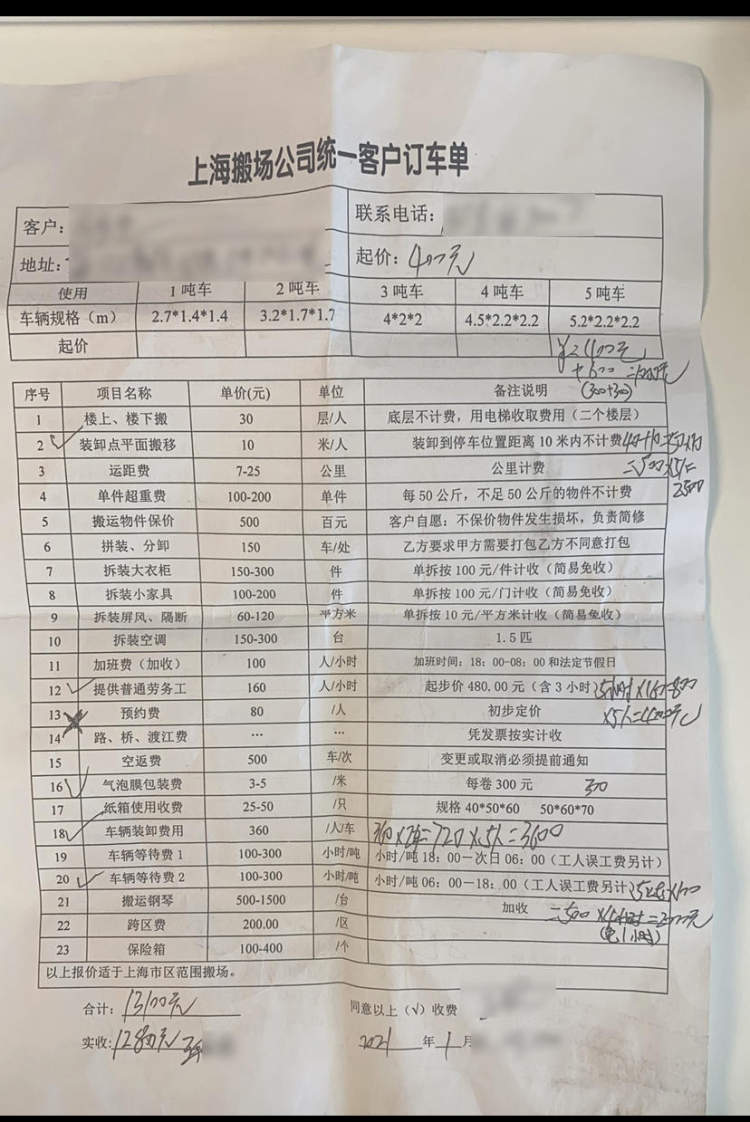 上海搬场公司统一客户订车单
客户:
联系电话:
地址:
起价: 400元
使用 1吨车 2吨车 3吨车 4吨车 5吨车
车辆规格(m) 2.7*1.4*1.4 3.2*1.7*1.7 4*2*2 4.5*2.2*2.2 5.2*2.2*2.2
起价
¥2400元
+600
(300+300)
序号 项目名称 单价(元) 单位 备注说明
1 楼上、楼下搬 30 层/人 底层不计费,用电梯收取费用(二个楼层)
2 装卸点平面搬移 10 米/人 装卸到停车位置距离10米内不计费
=500×5人=
2500
3 运距费 7-25 公里 公里计费
4 单件超重费 100-200 单件 每50公斤,不足50公斤的物件不计费
5 搬运物件保价 500 百元 客户自愿:不保价物件发生损坏,负责简修
6 拼装、分卸 150 车/处 乙方要求甲方需要打包乙方不同意打包
7 拆装大衣柜 150-300 件 单拆按100元/件计收(简易免收)
8 拆装小家具 100-200 件 单拆按100元/门计收(简易免收)
9 拆装屏风、隔断 60-120 平方米 单拆按10元/平方米计收(简易免收)
10 拆装空调 150-300 台 1.5匹
11 加班费(加收) 100 人/小时 加班时间:18:00-08:00和法定节假日
12 提供普通劳务工 160 人/小时 起步价480.00元(含3小时) 5小时×160=800
×5人=4000元
13 预约费 80 /人 初步定价
14 路、桥、渡江费 … … 凭发票按实计收
15 空返费 500 车/次 变更或取消必须提前通知
16 气泡膜包装费 3-5 /米 每卷300元 300
17 纸箱使用收费 25-50 /只 规格40*50*60 50*60*70
18 车辆装卸费用 360 /人/车 360×2车=720×5人=3600
19 车辆等待费1 100-300 小时/吨 小时/吨18:00一次日06:00(工人误工费另计)
20 车辆等待费2 100-300 小时/吨 小时/吨06:00-18:00(工人误工费另计
21 搬运钢琴 500-1500 /台 加收
=500×4小时=2000元
(免1小时)
22 跨区费 200.00 /区
23 保险箱 100-400 /个
以上报价适于上海市区范围搬场。
合计: 13100元 同意以上(√)收费
实收: 12800元
2021年1月